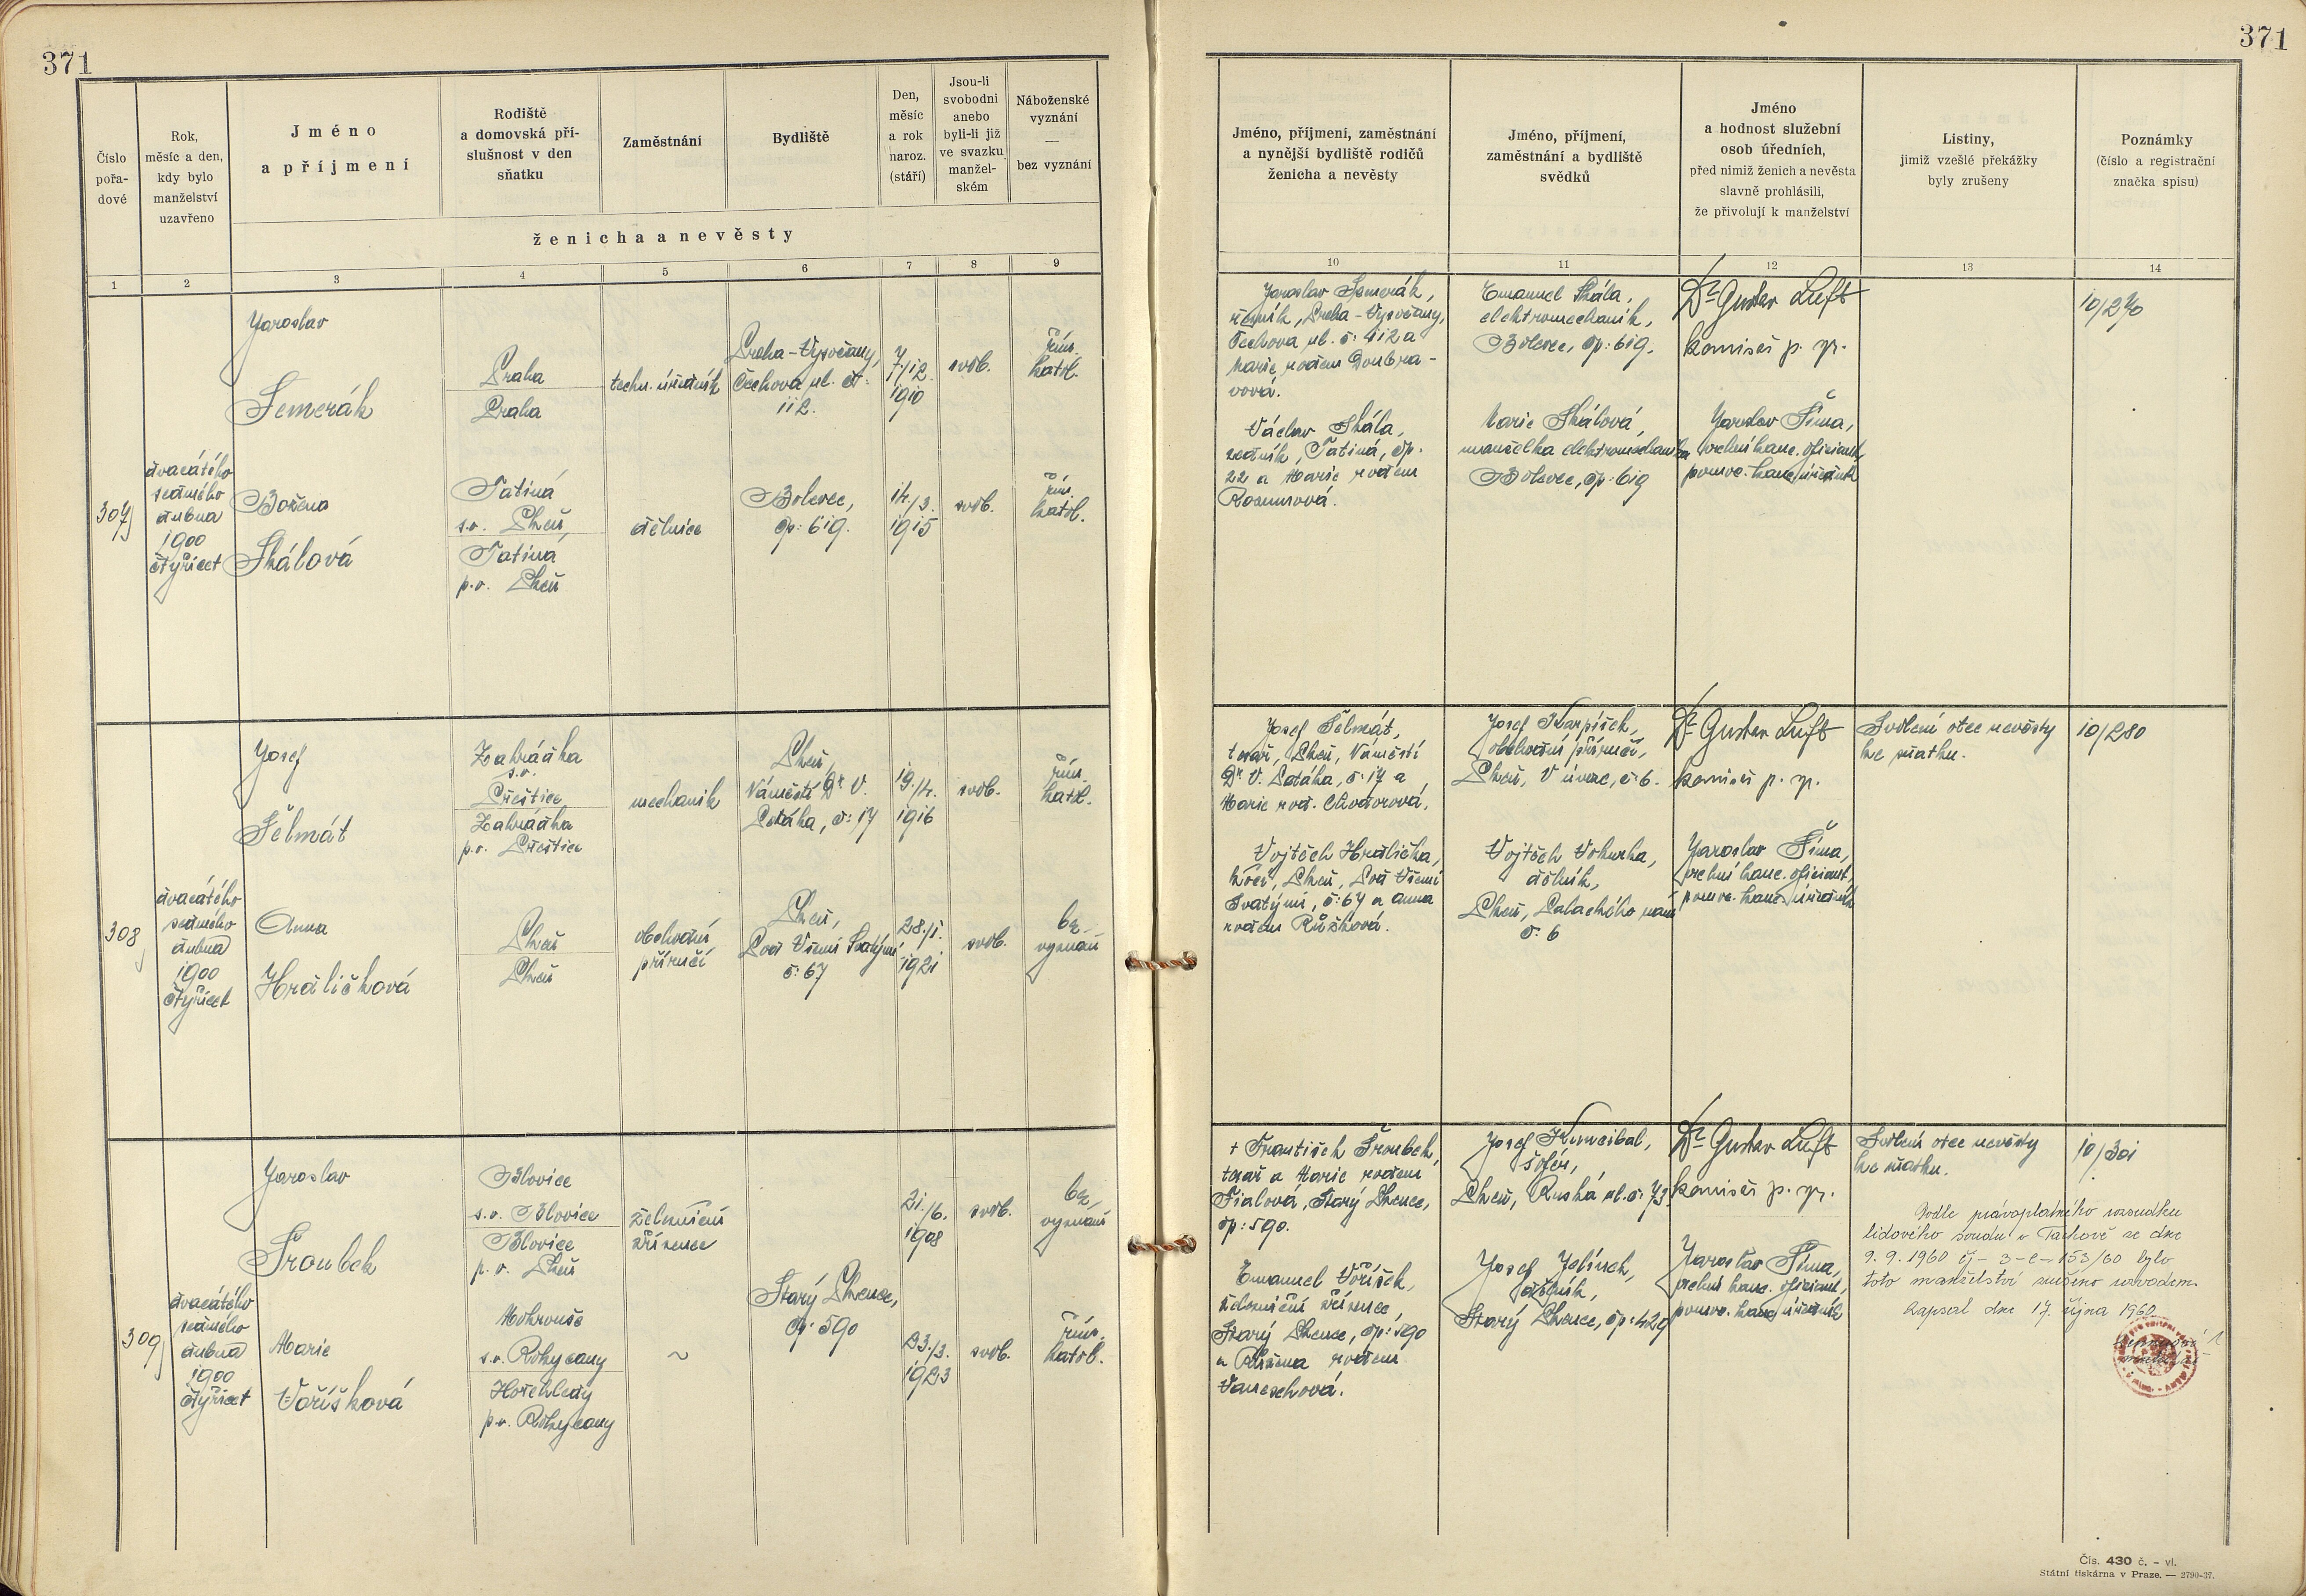 371
371
Číslo
pořa-
dové
Rok,
měsíc a den,
kdy bylo
manželství
uzavřeno
Jméno
a příjmení
Rodiště
a domovská pří-
slušnost v den
sňatku
Zaměstnání
Bydliště
Den,
měsíc
a rok
naroz.
(stáří)
Jsou-li
svobodni
anebo
byli-li již
ve svazku
manžel-
ském
Náboženské
vyznání
—
bez vyznání
ženicha a nevěsty
Jméno, příjmení, zaměstnání
a nynější bydliště rodičů
ženicha a nevěsty
Jméno, příjmení,
zaměstnání a bydliště
svědků
Jméno
a hodnost služební
osob úředních,
před nimiž ženich a nevěsta
slavně prohlásili,
že přivolují k manželství
Listiny,
jimiž vzešlé překážky
byly zrušeny
Poznámky
(číslo a registrační
značka spisu)
1
2
3
4
5
6
7
8
9
10
11
12
13
14
307
dvacátého
sedmého
dubna
1900
čtyřicet
Jaroslav
Semerák
Praha
Praha
techn. úředník
Praha-Vysočany,
Čechova ul. č:
112.
7/12.
1910
svob.
řím.
katol.
Božena
Skálová
Tatiná
s.o. Plzeň,
Tatiná,
p.o. Plzeň
dělnice
Bolevec,
čp: 619.
14./3.
1915
svob.
řím.
katol.
Jaroslav Semerák,
řezník, Praha-Vysočany,
Čechova ul. č: 412 a
Marie, rodem Doubra-
vová.
Václav Skála,
zedník, Tatiná, čp.
22 a Marie rodem
Emanuel Skála,
elektromechanik,
Bolevec, čp: 619.
Marie Skálová,
manželka elektromechanika
Bolevec, čp: 619
Dr Gustav Luft
komisař p. sp.
Jaroslav Šíma,
vrchní kanc. oficiant,
pomoc. kanc. úředník
10/270
308
dvacátého
sedmého
dubna
1900
čtyřicet
Josef
Šelmát
Zahrádka
s.o.
Přeštice
Zahrádka
p.o. Přeštice
mechanik
Plzeň,
Náměstí Dr V.
Petáka, č: 17
19./4.
1916
svob.
řím.
katol.
Anna
Hrdličková
Plzeň
Plzeň
obchodní
příručí
Plzeň,
Pod Všemi Svatými
č: 67
28./1.
1921
svob.
bez
vyznání
Josef Šelmát,
tesař, Plzeň, Náměstí
Dr V. Petáka, č: 17 a
Marie rod.
Vojtěch Hrdlička,
kočí, Plzeň, Pod Všemi
Svatými, č: 67 a Anna
rodem Růžková.
Josef Karpíšek,
obchodní příručí,
Plzeň, V úvoze, č: 6.
Vojtěch Vokurka,
dělník,
Plzeň, Palackého nám
č: 6
Dr Gustav Luft
komisař p. sp.
Jaroslav Šíma,
vrchní kanc. oficiant,
pomoc. kanc. úředník
Svolení otce nevěsty
ke sňatku.
10/280
309
dvacátého
sedmého
dubna
1900
čtyřicet
Jaroslav
Šroubek
Blovice
s.o. Blovice
Blovice
p.o. Plzeň
železniční
zřízenec
Starý Plzenec,
čp: 590
21./6.
1908
svob.
bez
vyznání
Marie
Voříšková
Mokrouše
s.o. Rokycany
Hořehledy
p.o. Rokycany
~
23./3.
1923
svob.
řím.
katol.
+ František Šroubek,
tesař a Marie rodem
Fialová, Starý Plzenec,
čp: 590.
Emanuel Voříšek,
železniční zřízenec,
Starý Plzenec, čp: 590
a Růžena rodem
Josef Kunceibal,
šofér,
Plzeň, Ruská ul. č: 73.
Josef Jelínek,
dělník,
Starý Plzenec, čp: 429
Dr Gustav Luft
komisař p. sp.
Jaroslav Šíma,
vrchní kanc. oficiant,
pomoc. kanc. úředník
Svolení otce nevěsty
ke sňatku.
10/301
Podle právoplatného rozsudku
lidového soudu v Tachově ze dne
9. 9. 1960 čj - 3-C-153/60 bylo
toto manželství zrušeno rozvodem.
Zapsal dne 17. října 1960
Čís. 430 č. - vl.
Státní tiskárna v Praze. — 2790-37.